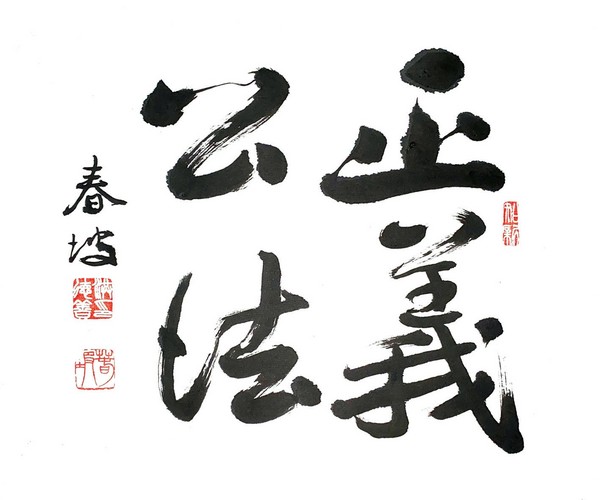 正義
公法
春坡